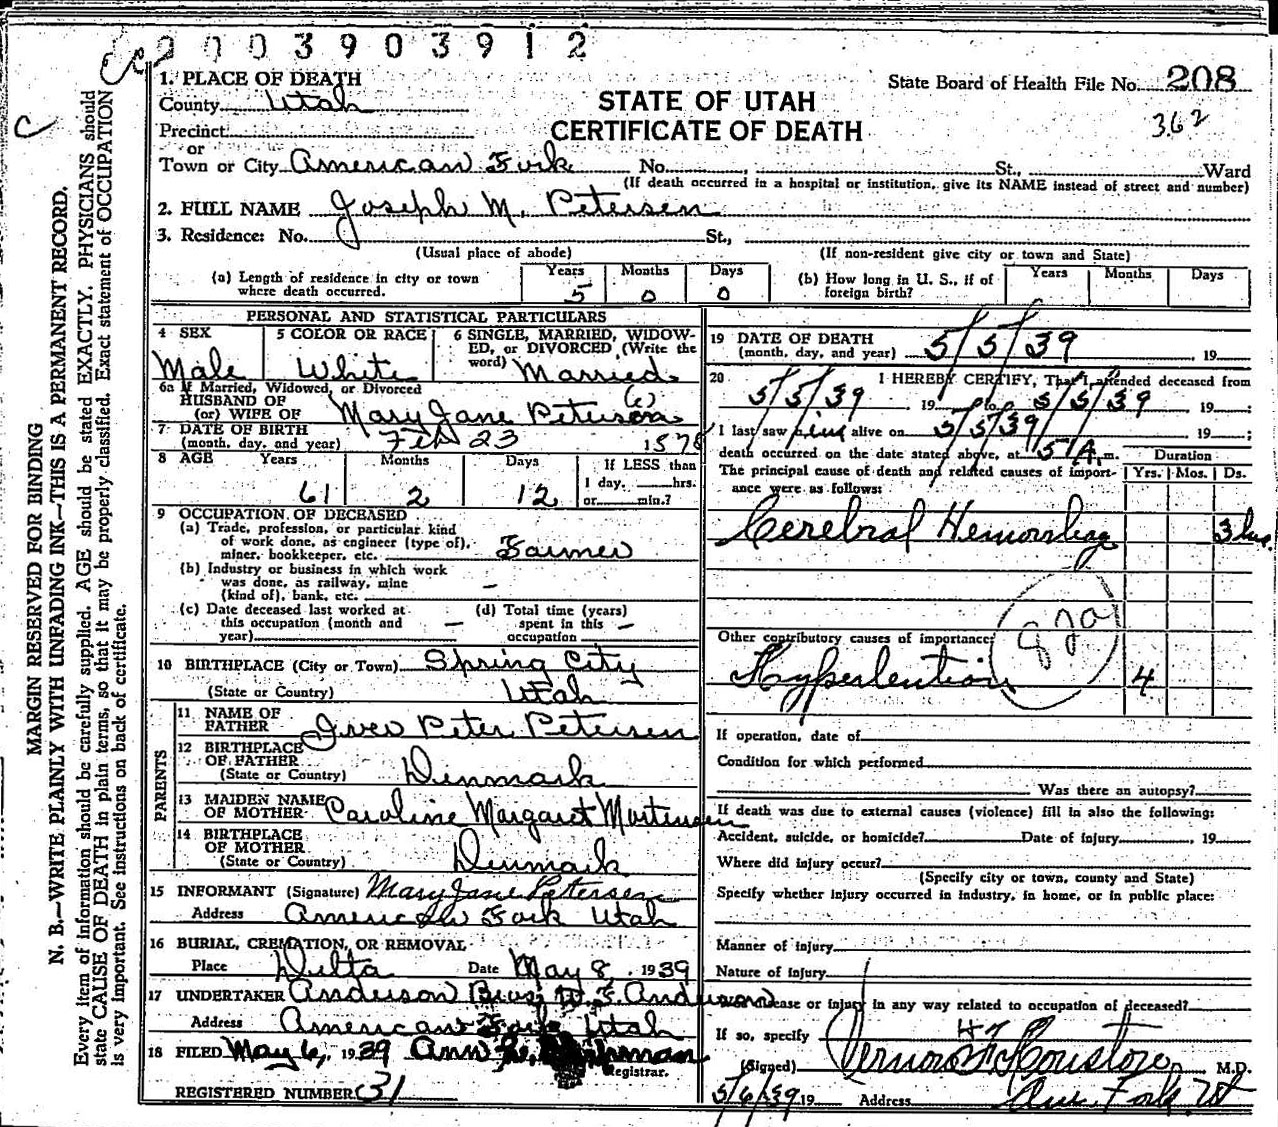 2003903912
1. PLACE OF DEATH
State Board of Health File No. 208
County Utah
STATE OF UTAH
362
Precinct
CERTIFICATE OF DEATH
or
Town or City American Fork No. , St., Ward
(If death occurred in a hospital or institution, give its NAME instead of street and number)
2. FULL NAME Joseph M. Petersen
3. Residence: No. St.,
(Usual place of abode) (If non-resident give city or town and State)
(a) Length of residence in city or town where death occurred. Years 5 Months 0 Days 0
(b) How long in U. S., if of foreign birth? Years Months Days
PERSONAL AND STATISTICAL PARTICULARS
4 SEX Male
5 COLOR OR RACE White
6 SINGLE, MARRIED, WIDOWED, or DIVORCED (Write the word) Married
6a If Married, Widowed, or Divorced
HUSBAND OF
(or) WIFE OF Mary Jane Peterson (e)
7 DATE OF BIRTH
(month, day, and year) Feb 23 1878
8 AGE Years 61 Months 2 Days 12
If LESS than
1 day, hrs.
or min.?
9 OCCUPATION OF DECEASED
(a) Trade, profession, or particular kind
of work done, as engineer (type of),
miner, bookkeeper, etc. Farmer
(b) Industry or business in which work
was done, as railway, mine
(kind of), bank, etc. –
(c) Date deceased last worked at
this occupation (month and
year) –
(d) Total time (years)
spent in this
occupation –
10 BIRTHPLACE (City or Town) Spring City
(State or Country) Utah
PARENTS
11 NAME OF
FATHER Iver Peter Petersen
12 BIRTHPLACE
OF FATHER
(State or Country) Denmark
13 MAIDEN NAME
OF MOTHER Caroline Margaret Mortensen
14 BIRTHPLACE
OF MOTHER
(State or Country) Denmark
15 INFORMANT (Signature) Mary Jane Petersen
Address American Fork Utah
16 BURIAL, CREMATION, OR REMOVAL
Place Delta Date May 8, 1939
17 UNDERTAKER Anderson Bros. W. E. Anderson
Address American Fork Utah
18 FILED May 6, 1939 Ann
Registrar.
REGISTERED NUMBER 31
19 DATE OF DEATH
(month, day, and year) 5/5/39 , 19
20 I HEREBY CERTIFY, That I attended deceased from
5/5/39 19 to 5/5/39 19 ;
I last saw him alive on 5/5/39 19 ;
death occurred on the date stated above, at 5 A. m.
The principal cause of death and related causes of importance were as follows:
Duration
Yrs. Mos. Ds.
Cerebral Hemorrhage 3 hrs.
Other contributory causes of importance:
82a
Hypertention 4
If operation, date of
Condition for which performed
Was there an autopsy?
If death was due to external causes (violence) fill in also the following:
Accident, suicide, or homicide? Date of injury , 19
Where did injury occur?
(Specify city or town, county and State)
Specify whether injury occurred in industry, in home, or in public place:
Manner of injury
Nature of injury
disease or injury in any way related to occupation of deceased?
If so, specify
(Signed) Vernon Houston M.D.
5/6/39 19 Address Am. Fork, Ut
MARGIN RESERVED FOR BINDING
N. B.—WRITE PLAINLY WITH UNFADING INK—THIS IS A PERMANENT RECORD.
Every item of information should be carefully supplied. AGE should be stated EXACTLY. PHYSICIANS should
state CAUSE OF DEATH in plain terms, so that it may be properly classified. Exact statement of OCCUPATION
is very important. See instructions on back of certificate.